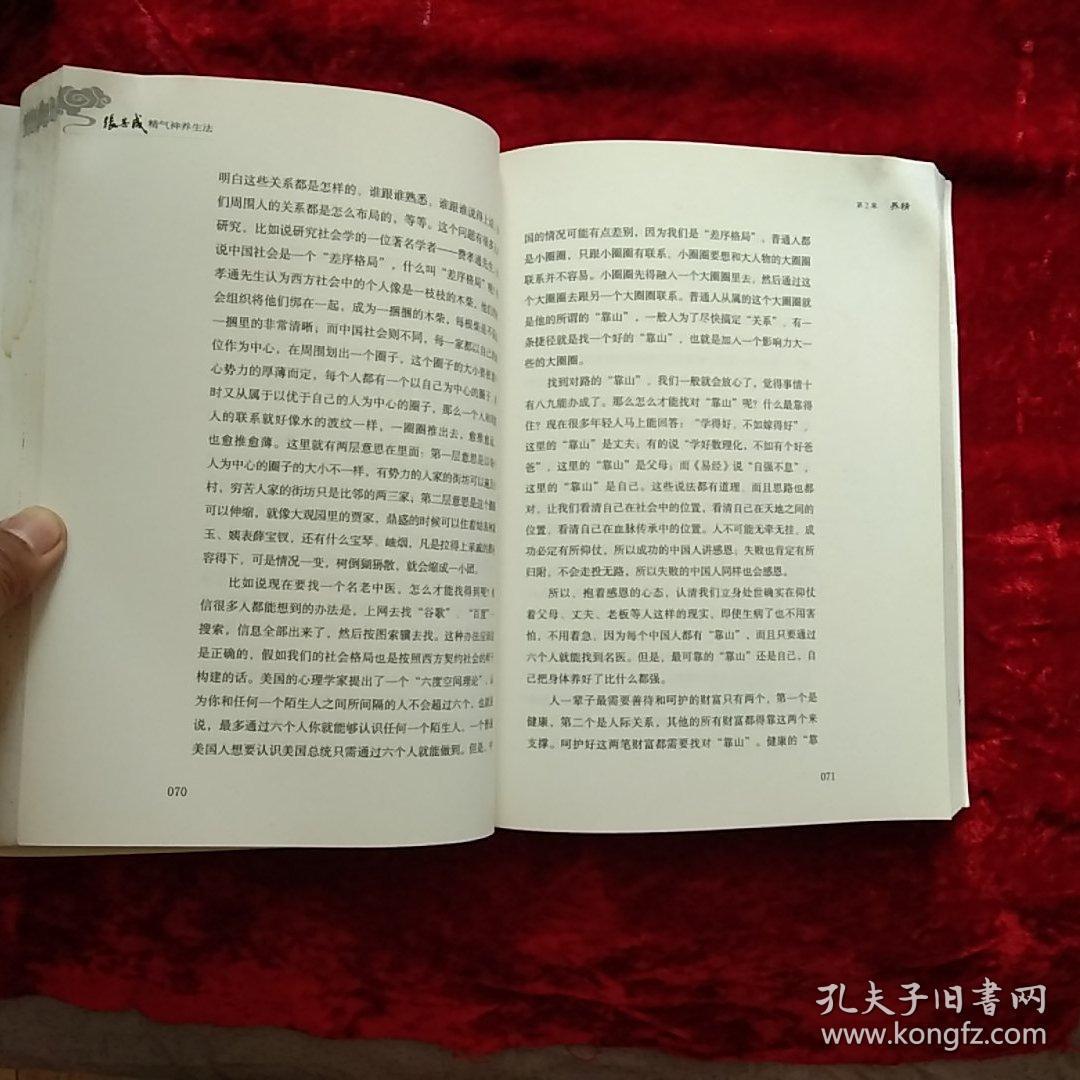 張其成 精气神养生法
明白这些关系都是怎样的，谁跟谁熟悉，谁跟谁说得上话，
们周围人的关系都是怎么布局的，等等。这个问题有很多
研究，比如说研究社会学的一位著名学者——费孝通先生，
说中国社会是一个“差序格局”，什么叫“差序格局”呢？
孝通先生认为西方社会中的个人像是一枝枝的木柴，他们
会组织将他们绑在一起，成为一捆捆的木柴，每根柴是不
一捆里的非常清晰；而中国社会则不同，每一家都以自己的
位作为中心，在周围划出一个圈子，这个圈子的大小要
心势力的厚薄而定，每个人都有一个以自己为中心的圈子，
时又从属于以优于自己的人为中心的圈子，那么一个人和
人的联系就好像水的波纹一样，一圈圈推出去，愈推愈远，
也愈推愈薄。这里就有两层意思在里面：第一层意思是以
人为中心的圈子的大小不一样，有势力的人家的街坊可以遍及
村，穷苦人家的街坊只是比邻的两三家；第二层意思是这个
可以伸缩，就像大观园里的贾家，鼎盛的时候可以住着姑表林
玉、姨表薛宝钗，还有什么宝琴、岫烟，凡是拉得上亲戚的
容得下，可是情况一变，树倒猢狲散，就会缩成一小团。
比如说现在要找一个名老中医，怎么才能找得到呢？
信很多人都能想到的办法是，上网去找“谷歌”、“百度”
搜索，信息全部出来了，然后按图索骥去找。这种办法应该
是正确的，假如我们的社会格局也是按照西方契约社会的
构建的话。美国的心理学家提出了一个“六度空间理论”，
为你和任何一个陌生人之间所间隔的人不会超过六个，也就
说，最多通过六个人你就能够认识任何一个陌生人，一个
美国人想要认识美国总统只需通过六个人就能做到。但是，中
070
第2章 养精
国的情况可能有点差别，因为我们是“差序格局”，普通人都
是小圈圈，只跟小圈圈有联系，小圈圈要想和大人物的大圈圈
联系并不容易。小圈圈先得融入一个大圈圈里去，然后通过这
个大圈圈去跟另一个大圈圈联系。普通人从属的这个大圈圈就
是他的所谓的“靠山”，一般人为了尽快搞定“关系”，有一
条捷径就是找一个好的“靠山”，也就是加入一个影响力大一
些的大圈圈。
找到对路的“靠山”，我们一般就会放心了，觉得事情十
有八九能办成了。那么怎么才能找对“靠山”呢？什么最靠得
住？现在很多年轻人马上能回答：“学得好，不如嫁得好”，
这里的“靠山”是丈夫；有的说“学好数理化，不如有个好爸
爸”，这里的“靠山”是父母；而《易经》说“自强不息”，
这里的“靠山”是自己。这些说法都有道理，而且思路也都
对，让我们看清自己在社会中的位置，看清自己在天地之间的
位置，看清自己在血脉传承中的位置。人不可能无牵无挂，成
功必定有所仰仗，所以成功的中国人讲感恩；失败也肯定有所
归附，不会走投无路，所以失败的中国人同样也会感恩。
所以，抱着感恩的心态，认清我们立身处世确实在仰仗
着父母、丈夫、老板等人这样的现实，即使生病了也不用害
怕，不用着急，因为每个中国人都有“靠山”，而且只要通过
六个人就能找到名医。但是，最可靠的“靠山”还是自己，自
己把身体养好了比什么都强。
人一辈子最需要善待和呵护的财富只有两个，第一个是
健康，第二个是人际关系，其他的所有财富都得靠这两个来
支撑。呵护好这两笔财富都需要找对“靠山”。健康的“靠
071
孔夫子旧書网
www.kongfz.com